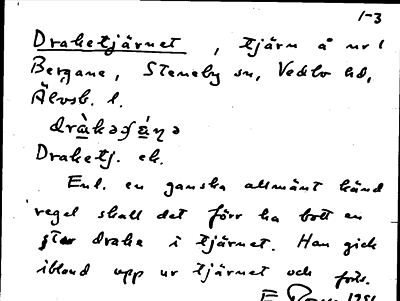 1-3
Draketjärnet, tjärn å nr 1
Bergane, Steneby sn, Vedbo hd,
Älvsb. l.
Draketj. ek.
Enl. en ganska allmänt känd
regel skall det förr ha bott en
stor drake i tjärnet. Han gick
ibland upp ur tjärnet och forts.